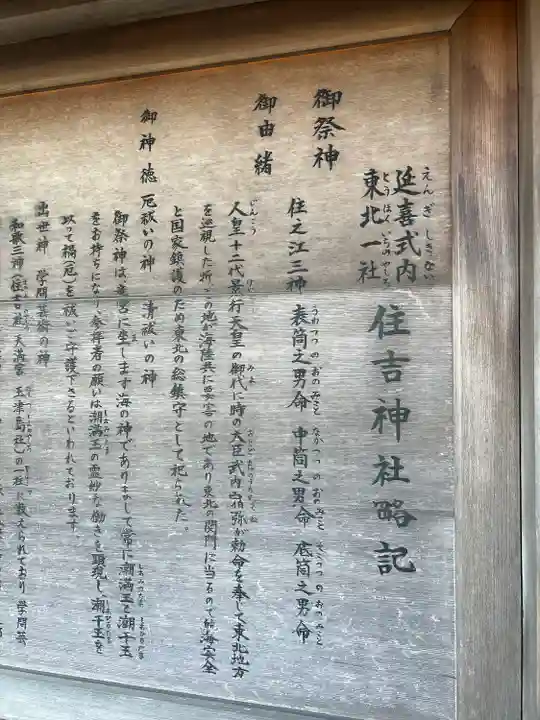 延喜式内
えんぎしきない
東北一社
とうほくいちのやしろ
住吉神社略記
御祭神
住之江三神 表筒之男命 中筒之男命 底筒之男命
うわつつのおのみこと なかつつのおのみこと そこつつのおのみこと
御由緒
人皇十二代景行天皇の御代に時の大臣武内宿弥が勅命を奉じて東北地方
を巡視した折、この地が海陸共に要害の地であり東北の関門に当るので航海安全
と国家鎮護のため東北の総鎮守として祀られた。
御神徳 厄祓いの神 清祓いの神
御祭神は墨江に坐します海の神でありまして常に潮満玉と潮干玉
をお持ちになり、参拝者の願いは潮満玉の霊妙な働きを顕現し、潮干玉を
以って禍(厄)を祓い守護下さるといわれております。
出世神 学問芸術の神
和歌三神(住吉社、天満宮、玉津島社)の一社に数えられており学問芸